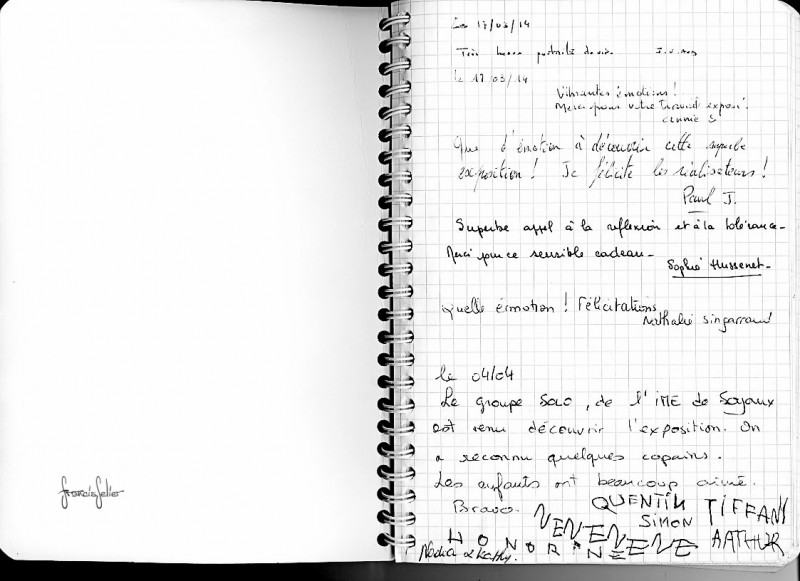 francis selier
Le 17/03/14
Très beaux portraits de vie.
le 17/03/14
Vibrantes émotions!
Merci pour votre travail exposé.
Annie S
Que d'émotion à découvrir cette superbe
exposition! Je félicite les réalisateurs!
Paul J.
Superbe appel à la réflexion et à la tolérance-
Merci pour ce sensible cadeau-
Sophie Hussenet-
Quelle émotion! Félicitations
Nathalie Singarraud
le 04/04
Le groupe Solo, de l'IME de Soyaux
est venu découvrir l'exposition. On
a reconnu quelques copains.
Les enfants ont beaucoup aimé.
Bravo.
QUENTIN
TIFFANY
SIMON
AATHUR
HONORINE
Nadia & Kathy.